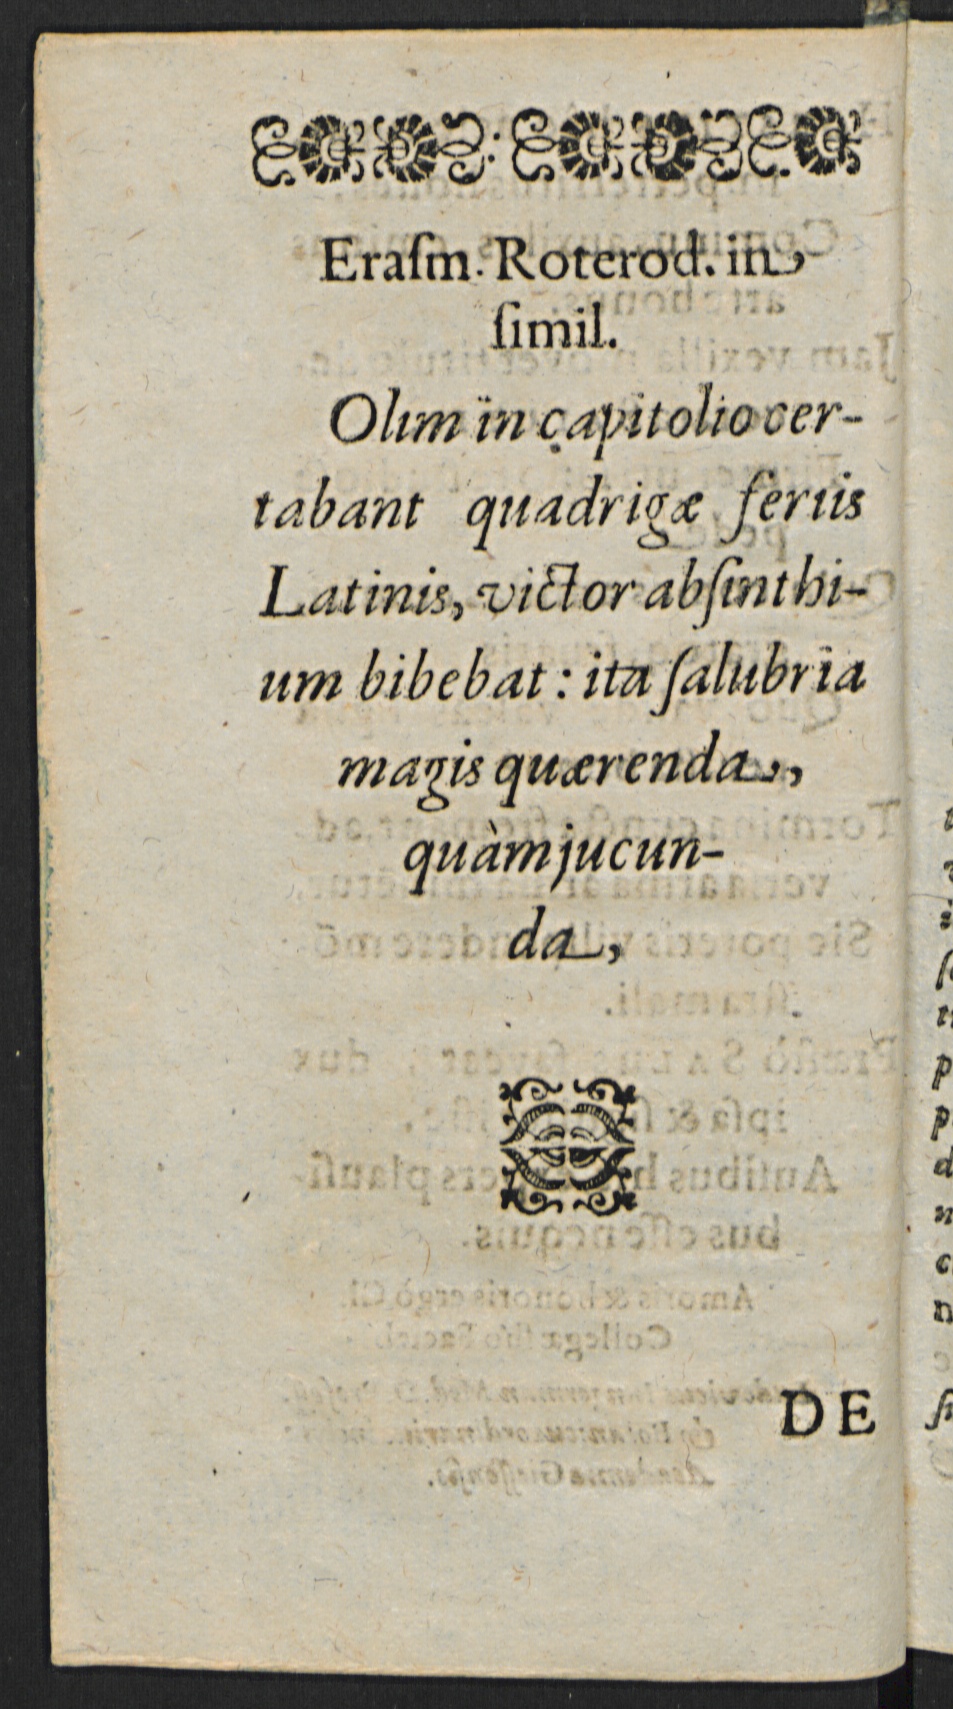 Eraſm. Roterod. in
ſimil.
Olim in capitolio cer-
tabant quadrigæ feriis
Latinis, victor abſinthi-
um bibebat: ita ſalubria
magis quærenda,
quàm jucun-
da,
DE